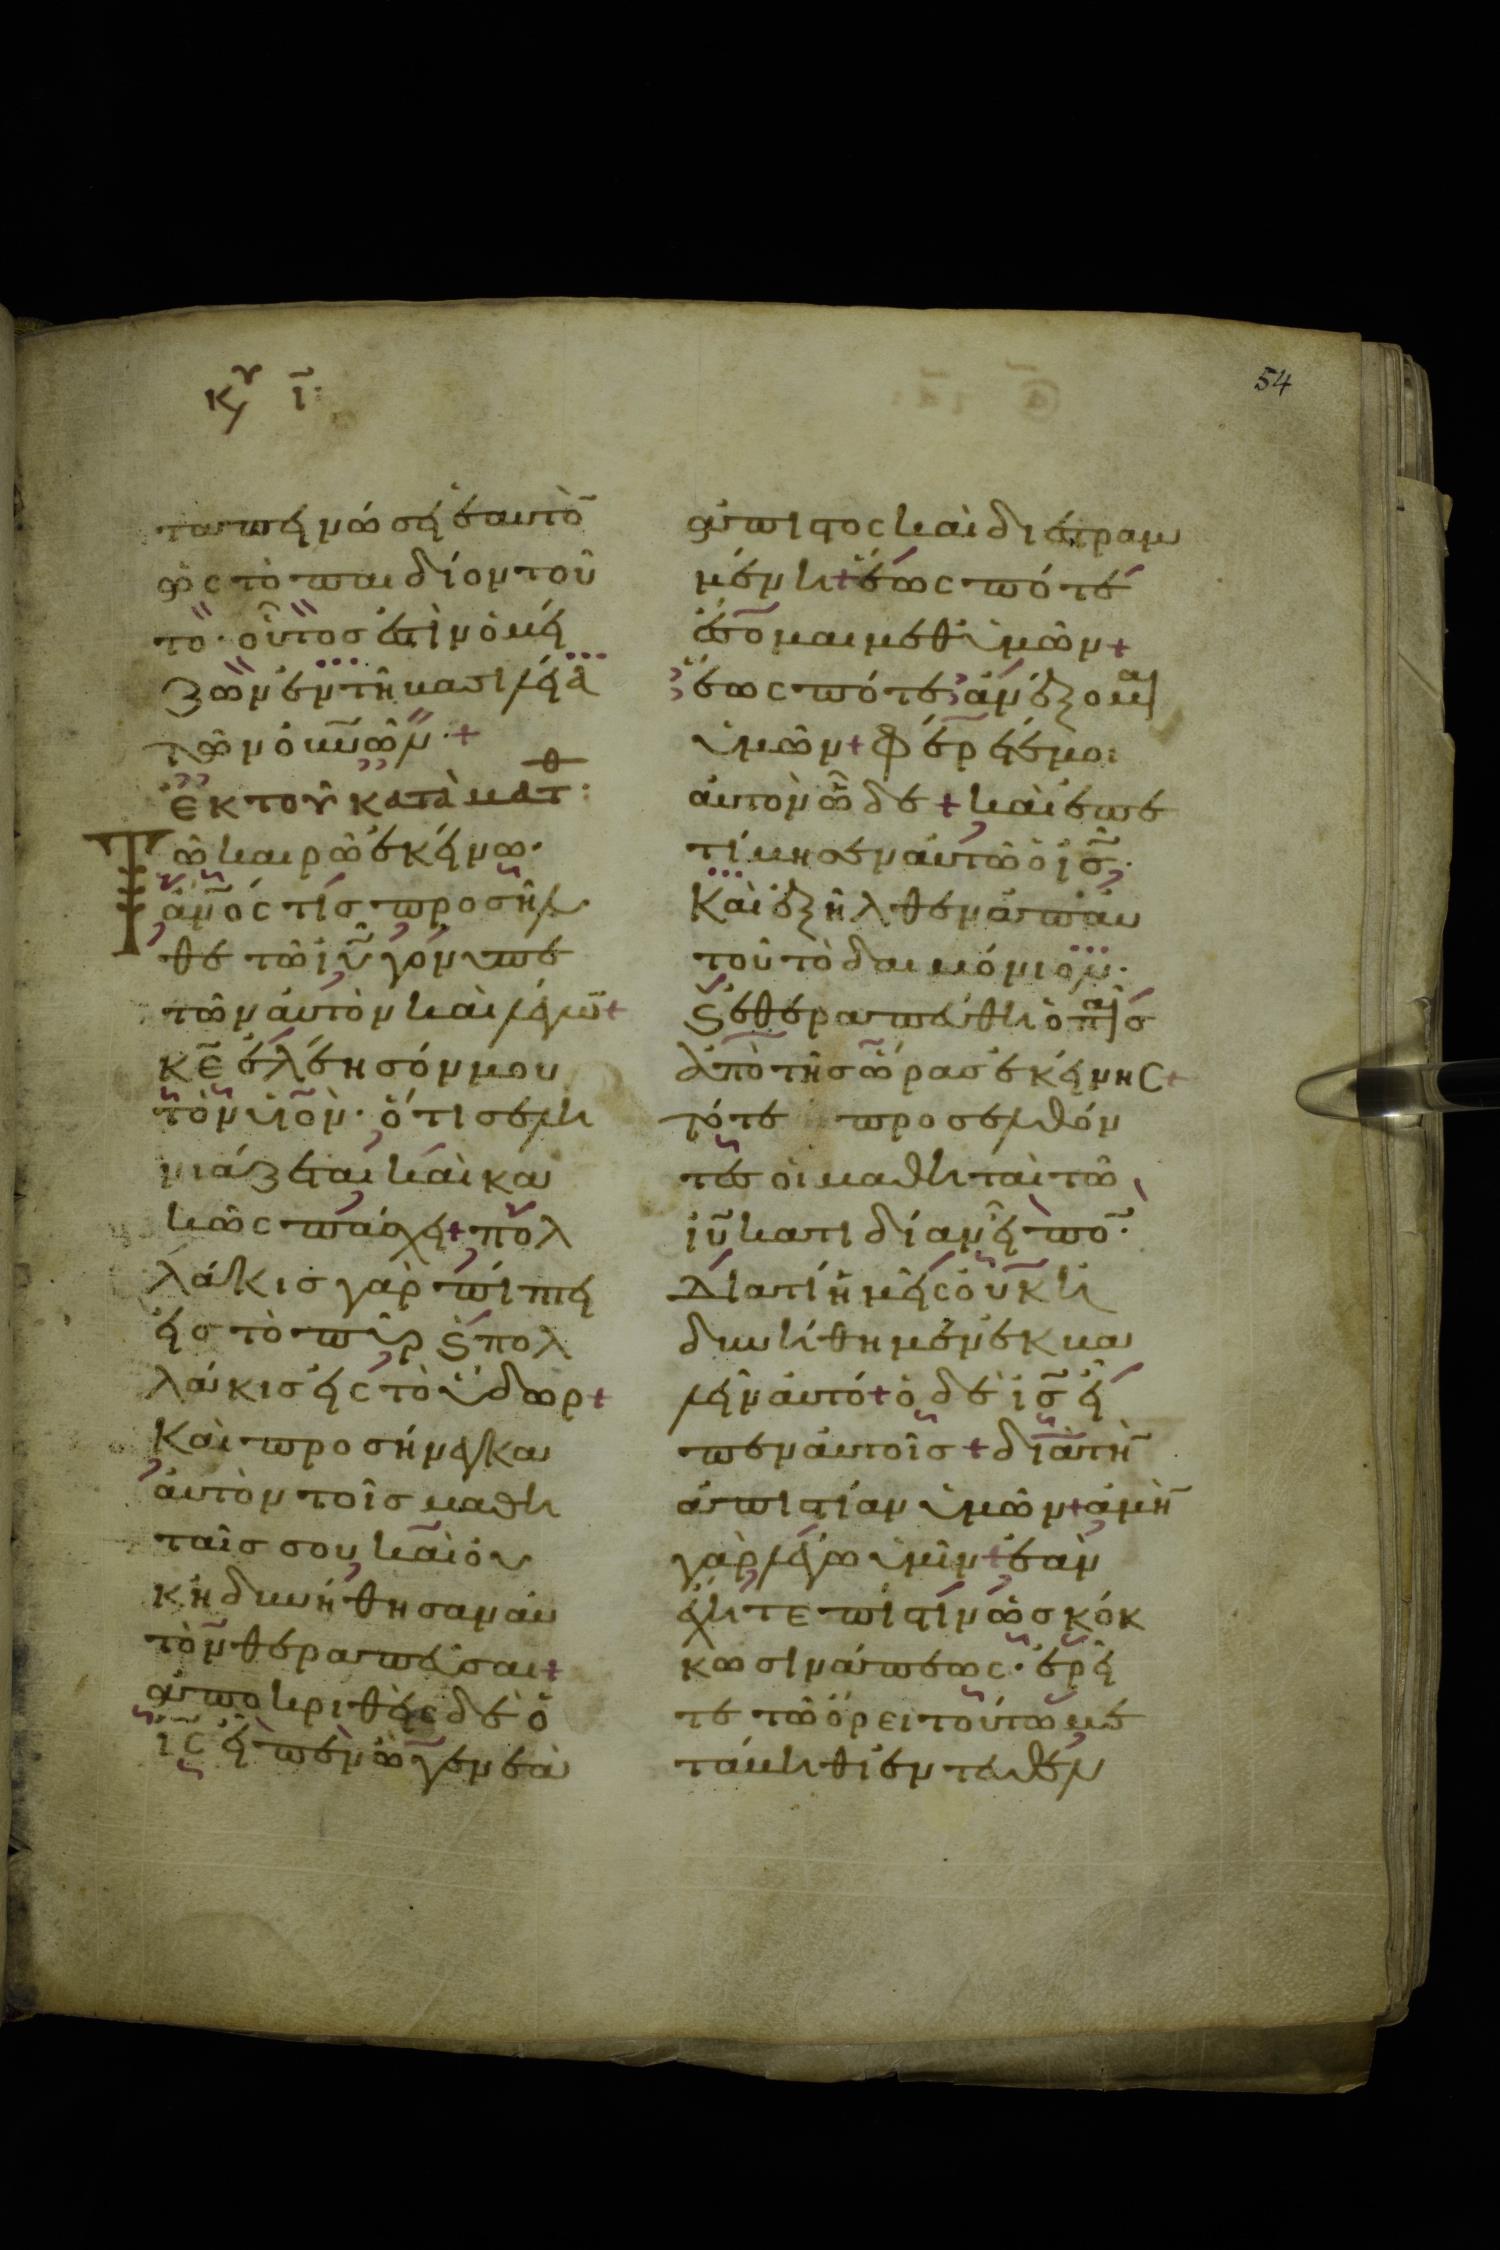 κυ ῑ:
54
ταπεινώσει ἑαυτὸ̄
ὡς τὸ παιδίον τοῦ
το· οὗτος ἐστὶν ὁ μεί
ζων ἐν τῇ βασιλείᾳ
τῶν οὐνῶν·+
ἐκ τοῦ κατὰ ματθ:
Τῶ καιρῶ ἐκείνω·
ἀνος τίς προσῆλ
θε τῶ ἰυ γονυπε
τῶν αὐτὸν καὶ λέγω̄+
κε ἐλέησόν μου
τὸν υἱὸν· ὅτι σελη
νιάζεται καὶ κα
κῶς πάσχει+πολ
λάκις γὰρ πίπτει
εἰς τὸ πῦρ ϗ πολ
λάκις εἰς τὸ ὕδωρ+
Καὶ προσήνεγκα
αὐτὸν τοῖς μαθη
ταῖς σου καὶ οὐ
κ ἠδυνήθησαν αὐ
τὸν θεραπεῦσαι+
ἀποκριθεὶς δὲ ὁ
ις εἶπεν ὦ γενεὰ
ἄπιστος καὶ διεστραμ
μένη+ἕως πότε
ἔσομαι μεθ ὑμῶν+
ἕως πότε ἀνέξομαι
ὑμῶν+φέρετέ μοι
αὐτὸν ὧδε+καὶ ἐπε
τίμησεν αὐτῶ ὁ ις·
Καὶ ἐξῆλθεν ἀπ αὐ
τοῦ τὸ δαιμόνιον·
ϗ ἐθεραπεύθη ὁ παῖς
ἀπὸ τῆς ὥρας ἐκείνης+
τότε προσελθόν
τες οἱ μαθηταὶ τῶ
ιυ κατιδίαν εἶπο̄·
Διατί ἡμεῖς οὐκ ἠ
δυνήθημεν ἐκβα
λεῖν αὐτό+ὁ δὲ ις εἶ
πεν αὐτοῖς+διὰ τὴ̄
ἀπιστίαν ὑμῶν+ἀμὴ̄
γὰρ λέγω ὑμῖν+ἐὰν
ἔχητε πίστιν ὡς κόκ
κω σινάπεως·ἐρεῖ
τε τῶ ὄρει τούτω με
τάβηθι ἐντεῦθεν